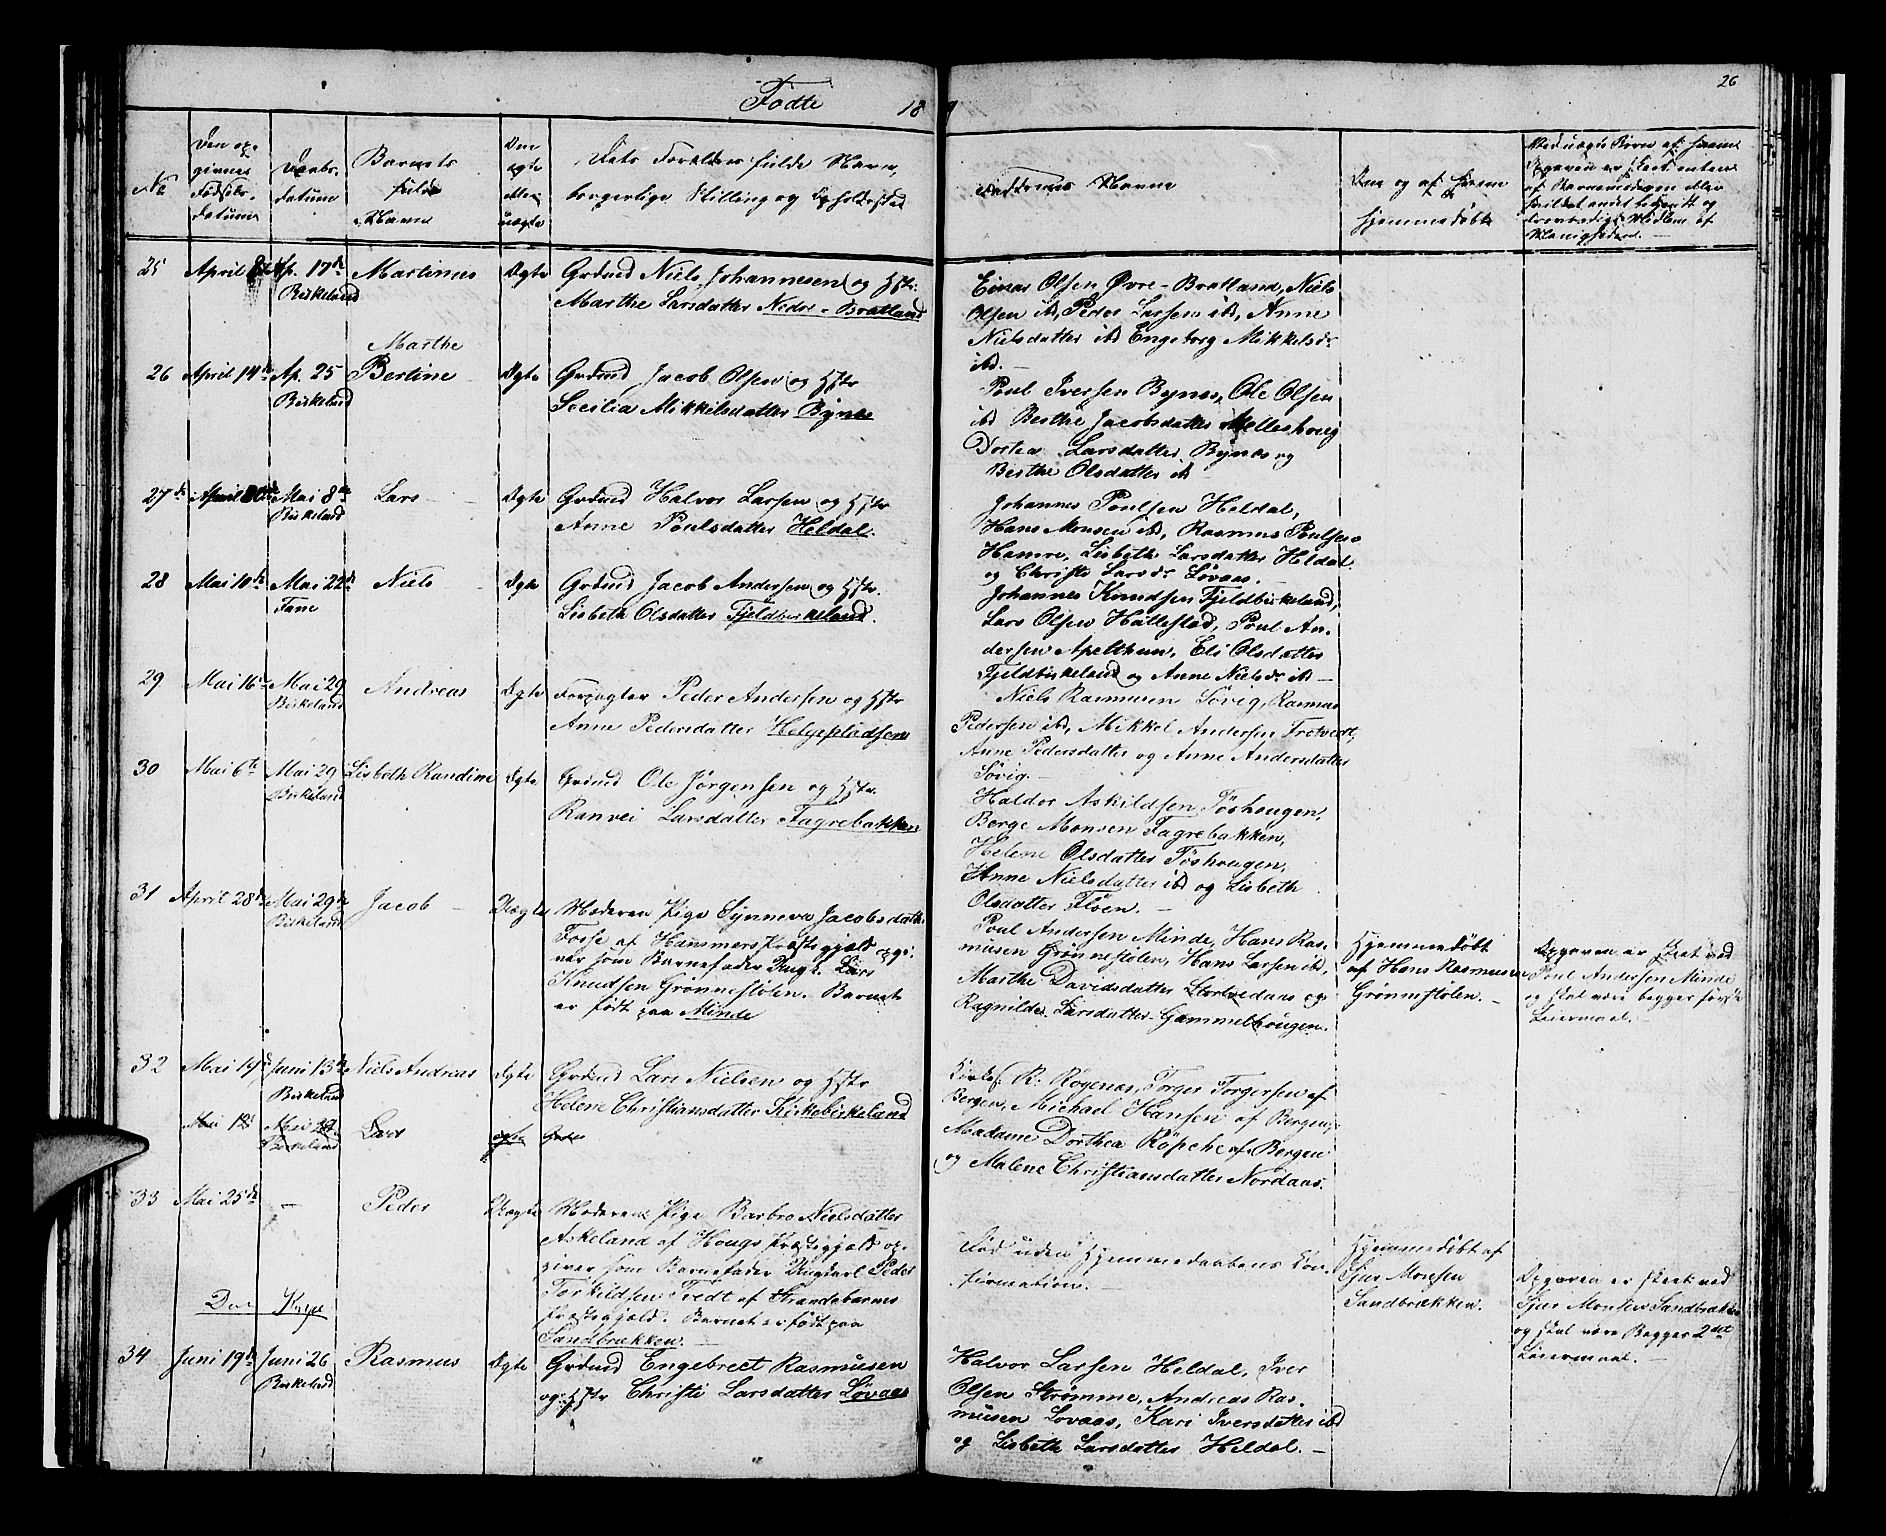 Fødte
18
26
No
Den op-
givne
Fødsels-
datum
Daabs-
datum
Barnets
fulde
Navn
Om
ægte
eller
uægte
Dets Forældres fulde Navn,
borgerlige Stilling og Opholdssted
Faddernes Navne
Om og af hvem
hjemmedøbt
25 April Ap. 17de Martinus Ægte Grdmd Niels Johannesen og Hstr.
Birkeland Marthe Larsdatter Nedre-Bratland
Einar Olsen Øvre-Bratland, Niels
Olsen ibd, Peder Larsen ibd, Anne
Nielsdatter ibd Engeborg Mikkelsdr
ibd.
Marthe
26 April 14de Ap. 25 Bertine Ægte Grdmd Jacob Olsen og Hstr
Birkeland Secilia Mikkelsdatter Bynes
Poul Iversen Bynes, Ole Olsen
ibd Berthe Jacobsdatter Melleshoug
Dortea Larsdatter Bynes og
Berthe Olsdatter ibd
27 April Mai 8de Lars Ægte Grdmd Halvor Larsen og Hstr
Birkeland Anne Poulsdatter Heldal.
Johannes Poulsen Heldal,
Hans Monsen ibd, Rasmus Poulsen
Hamre, Lisbeth Larsdatter Heldal
og Christi Larsdr Løvaas.
28 Mai 10de Mai 22de Niels Ægte Grdmd Jacob Andersen og Hstr.
Fane Lisbeth Olsdatter Fjeldbirkeland.
Johannes Knudsen Fjeldbirkeland,
Lars Olsen Hattestad, Poul An-
dersen Apelthun, Eli Olsdatter
Fjeldbirkeland og Anne Nielsdr ibd
29 Mai 16de Mai 29 Andreas Ægte Forpagter Peder Andersen og Hstr
Birkeland Anne Pedersdatter Helgepladsen
Niels Rasmusen Søvig, Rasmus
Pedersen ibd, Mikkel Andersen Fretvedt,
Anne Pedersdatter og Anne Andersdatter
Søvig.
30 Mai 6te Mai 29 Lisbeth Randine Ægte Grdmd Ole Jørgensen og Hstr.
Birkeland Ranvei Larsdatter Fagrebakken
Haldor Askildsen Töshougen,
Berge Monsen Fagrebakken,
Helene Olsdatter Töshougen,
Anne Nielsdatter ibd og Lisbeth
Olsdatter Fløen.
31 April 28de Mai 29de Jacob Uægte Moderen Pige Synneva Jacobsdatter
Birkeland Fosse af Hammers Præstegjæld opgi-
ver som Barnefader Ungk. Lars
Knudsen Grønnestølen. Barnet
er født paa Minde
Poul Andersen Minde, Hans Ras-
musen Grønnestølen, Hans Larsen ibd,
Marthe Davidsdatter Storetvedaas og
Ragnilde Larsdatter Gammelhougen.
Hjemmedøbt
af Hans Rasmusen
Grønnestølen.
Opgaven er skeet ved
Poul Andersen Minde
og skal være begges første
Leiermaal.
32 Mai 19de Juni 13de Niels Andreas Ægte Grdmd Lars Nielsen og Hstr
Birkeland Helene Christiansdatter Kirkebirkeland
R. Røgenæs, Torger Torgersen af
Bergen, Michael Hansen af Bergen,
Madame Dorthea Röpche af Bergen
og Malene Christiansdatter Nordaas.
Mai Mai Lars ægte
Birkeland
33 Mai 25de — Peder Uægte Moderen Pige Barbro Nielsdatter
Askeland af Hougs Præstegjæld op-
giver som Barnefader Ungkarl Peder
Torkildsen Tvedt af Strandebarms
Præstegjæld. Barnet er født paa
Sandbrækken.
Død uden Hjemmedaabens Con-
firmation.
Hjemmedøbt af
Sjur Monsen
Sandbrækken.
Opgaven er skeet ved
Sjur Monsen Sandbrækken
og skal være Begges 2det
Leiermaal.
34 Juni 19de Juni 26 Rasmus Ægte Grdmd Engebrect Rasmusen
Birkeland og Hstr Christi Larsdatter Løvaas
Halvor Larsen Heldal, Iver
Olsen Strømme, Andreas Ras-
musen Løvaas, Kari Iversdatter ibd
og Lisbeth Larsdatter Heldal.